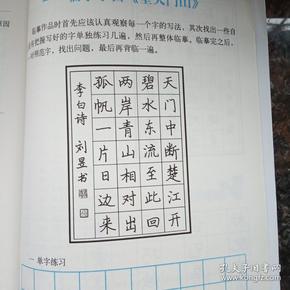 《望天门山》
临摹作品时首先应该认真观察每一个字的写法，其次找出一些自
握写好的字单独练习几遍，然后再整体临摹。临摹完之后，
范字，找出问题，最后再背临一遍。
天门中断楚江开
碧水东流至此回
两岸青山相对出
孤帆一片日边来
李白诗 刘昱书
一 单字练习
孔夫子旧书网